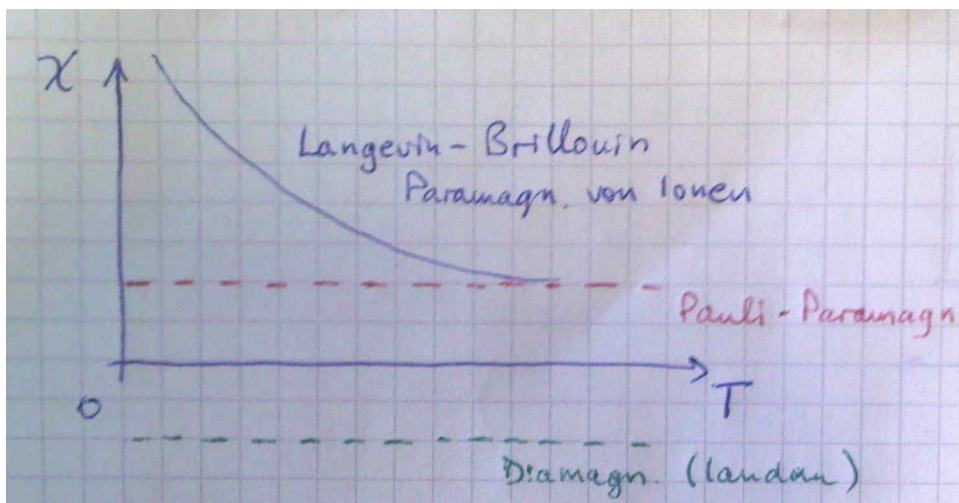 χ
Langevin - Brillouin
Paramagn. von Ionen
Pauli - Paramagn
O
T
Diamagn. (Landau)